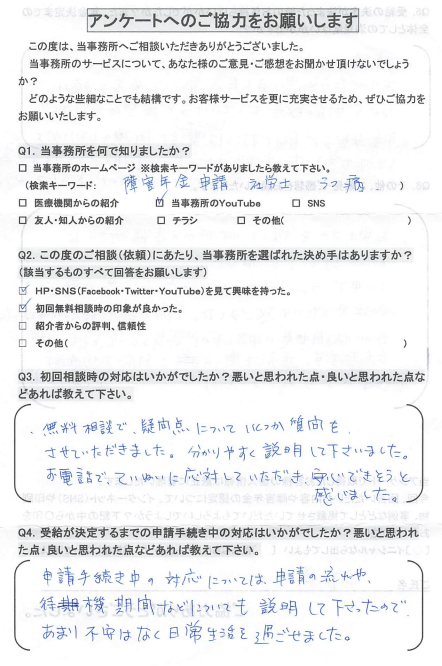 アンケートへのご協力をお願いします
この度は、当事務所へご相談いただきありがとうございました。
当事務所のサービスについて、あなた様のご意見・ご感想をお聞かせ頂けないでしょう
か?
どのような些細なことでも結構です。お客様サービスを更に充実させるため、ぜひご協力を
お願いいたします。
Q1. 当事務所を何で知りましたか?
□ 当事務所のホームページ ※検索キーワードがありましたら教えて下さい。
(検索キーワード: 障害年金 申請 社労士 うつ病 )
□ 医療機関からの紹介 ☑ 当事務所のYouTube □ SNS
□ 友人・知人からの紹介 □ チラシ □ その他( )
Q2. この度のご相談(依頼)にあたり、当事務所を選ばれた決め手はありますか?
(該当するものすべて回答をお願いします)
☑ HP・SNS(Facebook・Twitter・YouTube)を見て興味を持った。
☑ 初回無料相談時の印象が良かった。
□ 紹介者からの評判、信頼性
□ その他( )
Q3. 初回相談時の対応はいかがでしたか?悪いと思われた点・良いと思われた点な
どあれば教えて下さい。
・無料相談で、疑問点についていくつか質問を
させていただきました。分かりやすく説明して下さいました。
お電話で、ていねいに応対していただき、安心できそうと
感じました。
Q4. 受給が決定するまでの申請手続き中の対応はいかがでしたか?悪いと思われ
た点・良いと思われた点などあれば教えて下さい。
申請手続き中の対応については、申請の流れや、
待機期間などについても説明して下さったので、
あまり不安はなく日常生活を過ごせました。